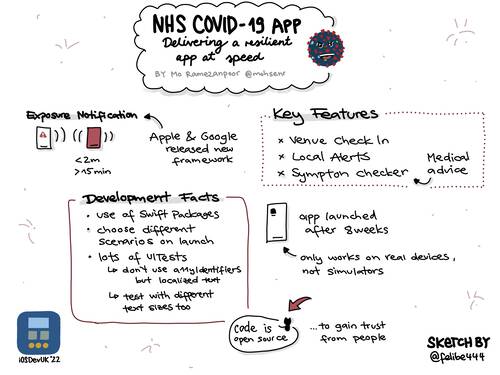 NHS COVID-19 APP
Delivering a resilient
app at speed
BY Mo Ramezanpoor @mohsenr
Exposure Notification
<2m
>15min
Apple & Google
released new
framework
Key Features
× Venue Check In
× Local Alerts
× Sympton Checker
Medical
advice
Development Facts
• use of Swift Packages
• choose different
scenarios on launch
• lots of UITests
↳ don't use a11yIdentifiers
but localized text
↳ test with different
text sizes too
app launched
after 8 weeks
only works on real devices,
not simulators
code is
open source
...to gain trust
from people
iOSDevUK'22
SKETCH BY
@felibe444